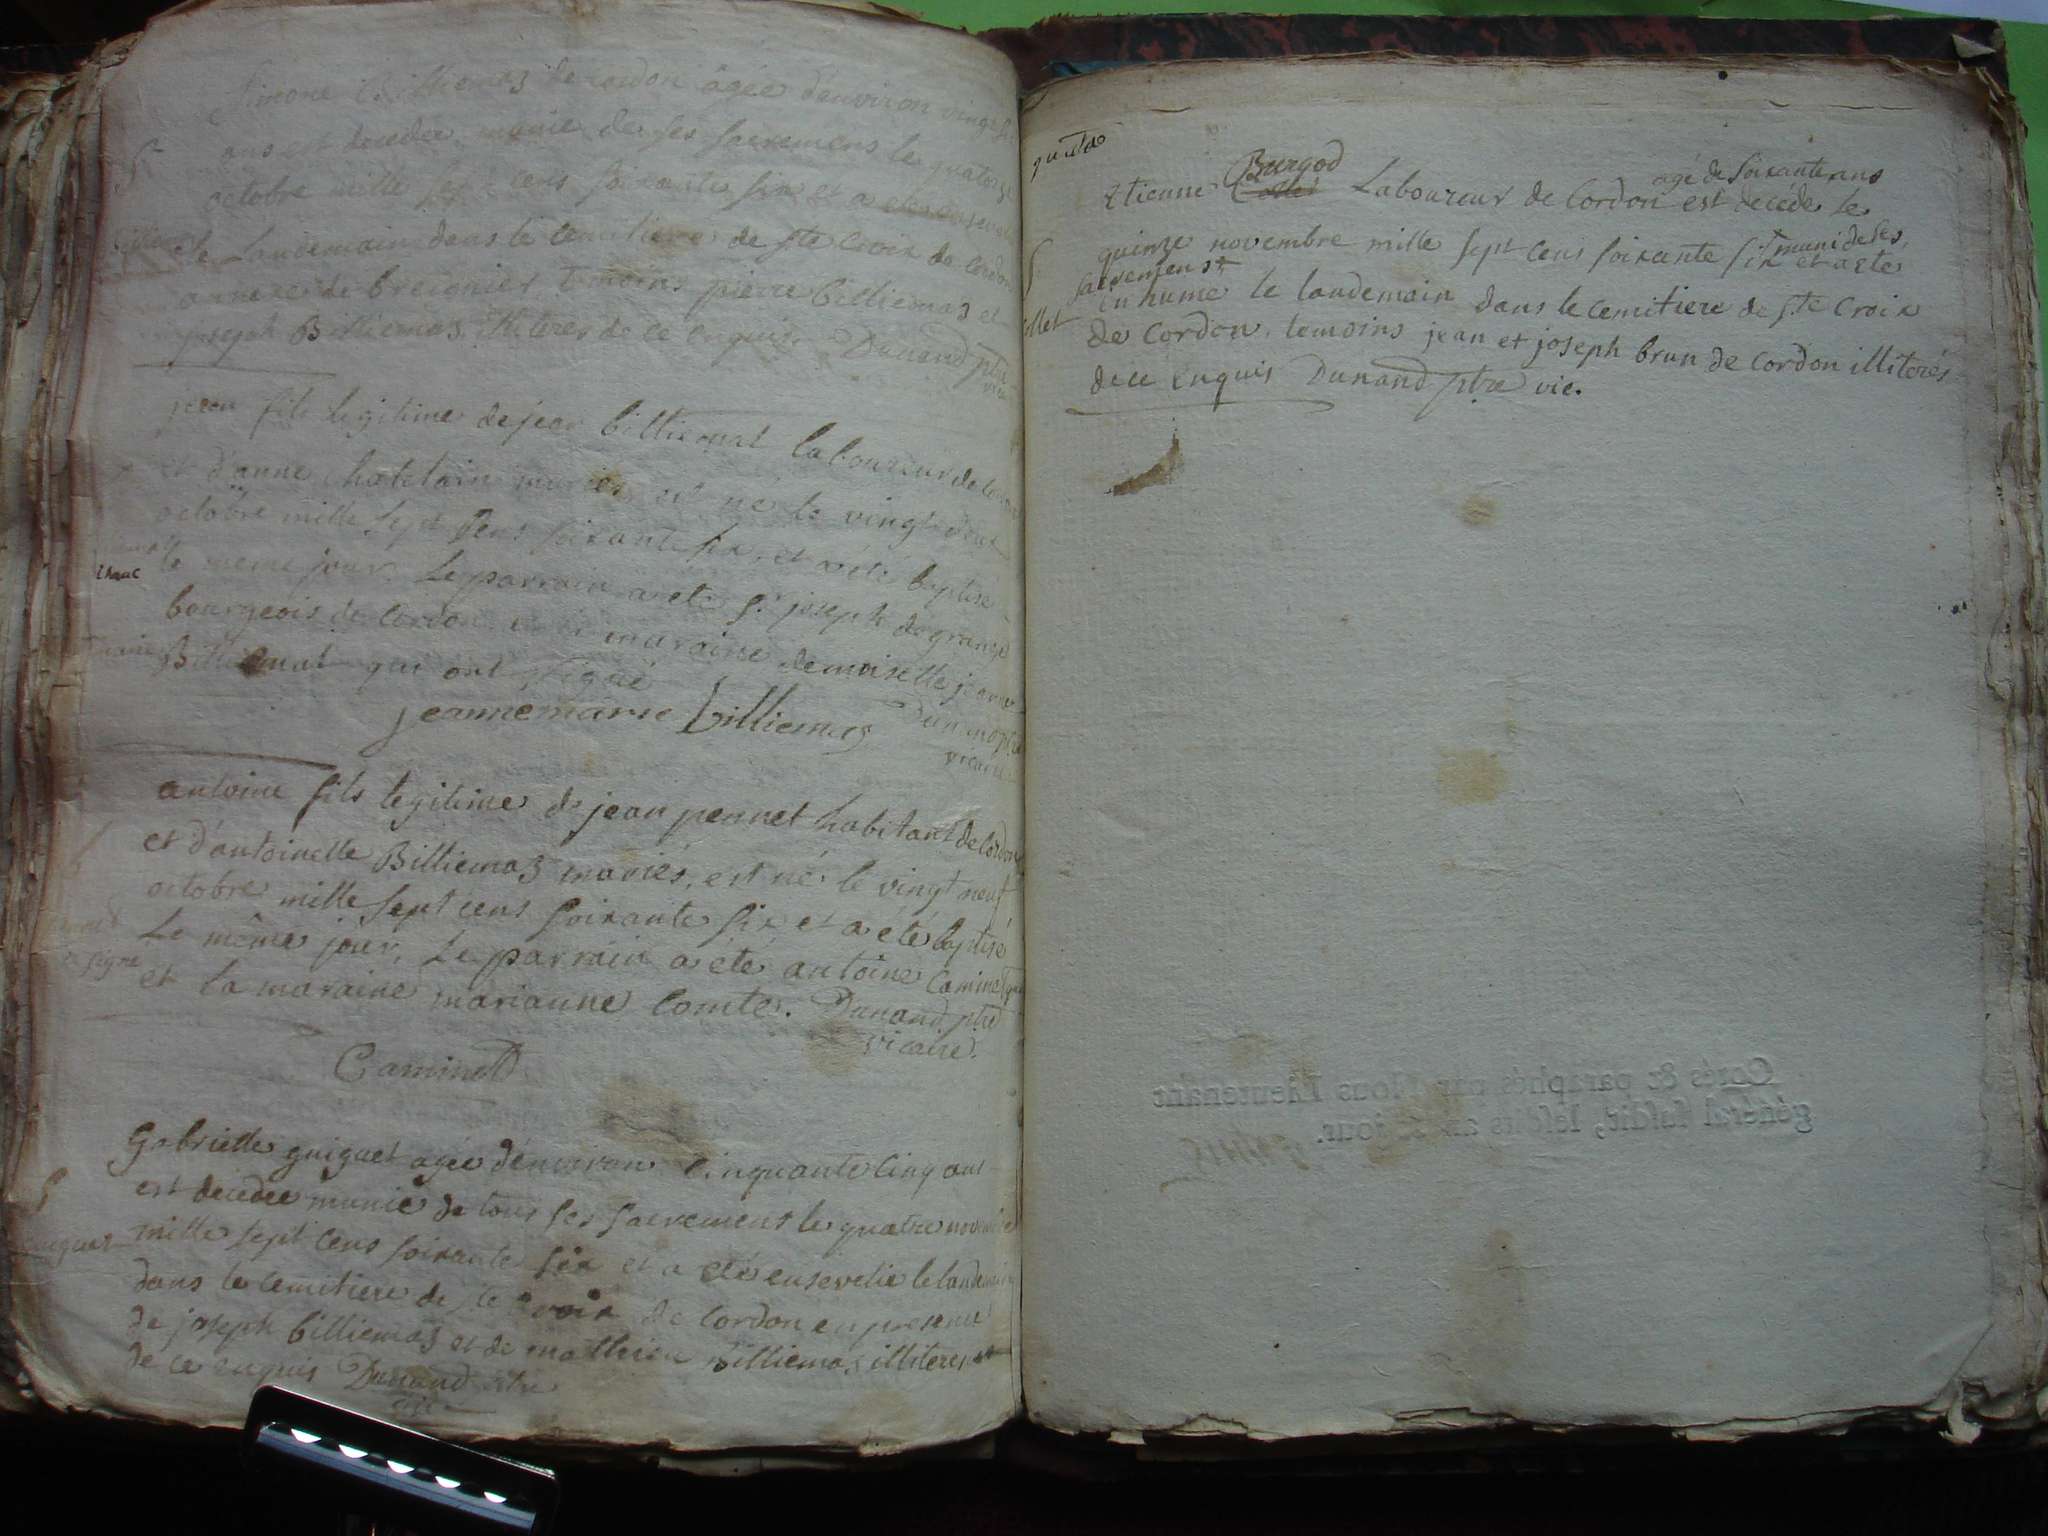 Simone Billiemaz de cordon âgée d'environ vingt
ans est decedée munie de ses sacremens le quatorze
octobre mille sept cens soixante six et a été ensevelie
le landemain dans le cemitiere de ste Croix de cordon
annexe de bregnier temoins pierre billiemaz et
joseph Billiemaz illiteres de ce enquis. Dunand ptre
vic.
jean fils legitime de jean billiemat laboureur de cordon
et d'anne chatelain mariés est né le vingt deux
octobre mille sept cens soixante six, et a été baptisé
le meme jour. Le parrain a eté sr joseph degrange
bourgeois de Cordon et la maraine demoiselle jeanne
Billiemat qui ont signé
Dunand ptre
vicaire
jeannemarie billiemaz
antoine fils legitime de jean pennet habitant de Cordon
et d'antoinette Billiemaz mariés, est né le vingt neuf
octobre mille sept cens soixante six et a été baptisé
Le même jour, Le parrain a été antoine Caminet qui
a signé
et la maraine marianne Comte. Dunand ptre
vicaire.
Caminet
Gabrielle guiguet agée d'environ cinquante cinq ans
est decedée munie de tous ses sacremens le quatre novembre
mille sept cens soixante six et a été ensevelie le landemain
dans le cemitiere de ste Croix de Cordon en presence
de joseph billiemaz et de mathieu Billiemaz illiteres
de ce enquis Dunand ptre
vic.
Burgod
agé de soixante ans
Etienne Laboureur de Cordon est decédé le
quinze novembre mille sept cens soixante six et a eté
muni de ses
sacremens
inhumé le landemain dans le cemitiere de ste Croix
de Cordon. temoins jean et joseph brun de Cordon illiterés
de ce enquis Dunand ptre vic.
Cotés & paraphés par Nous Lieutenant
général susdit, lesdits an & jour.